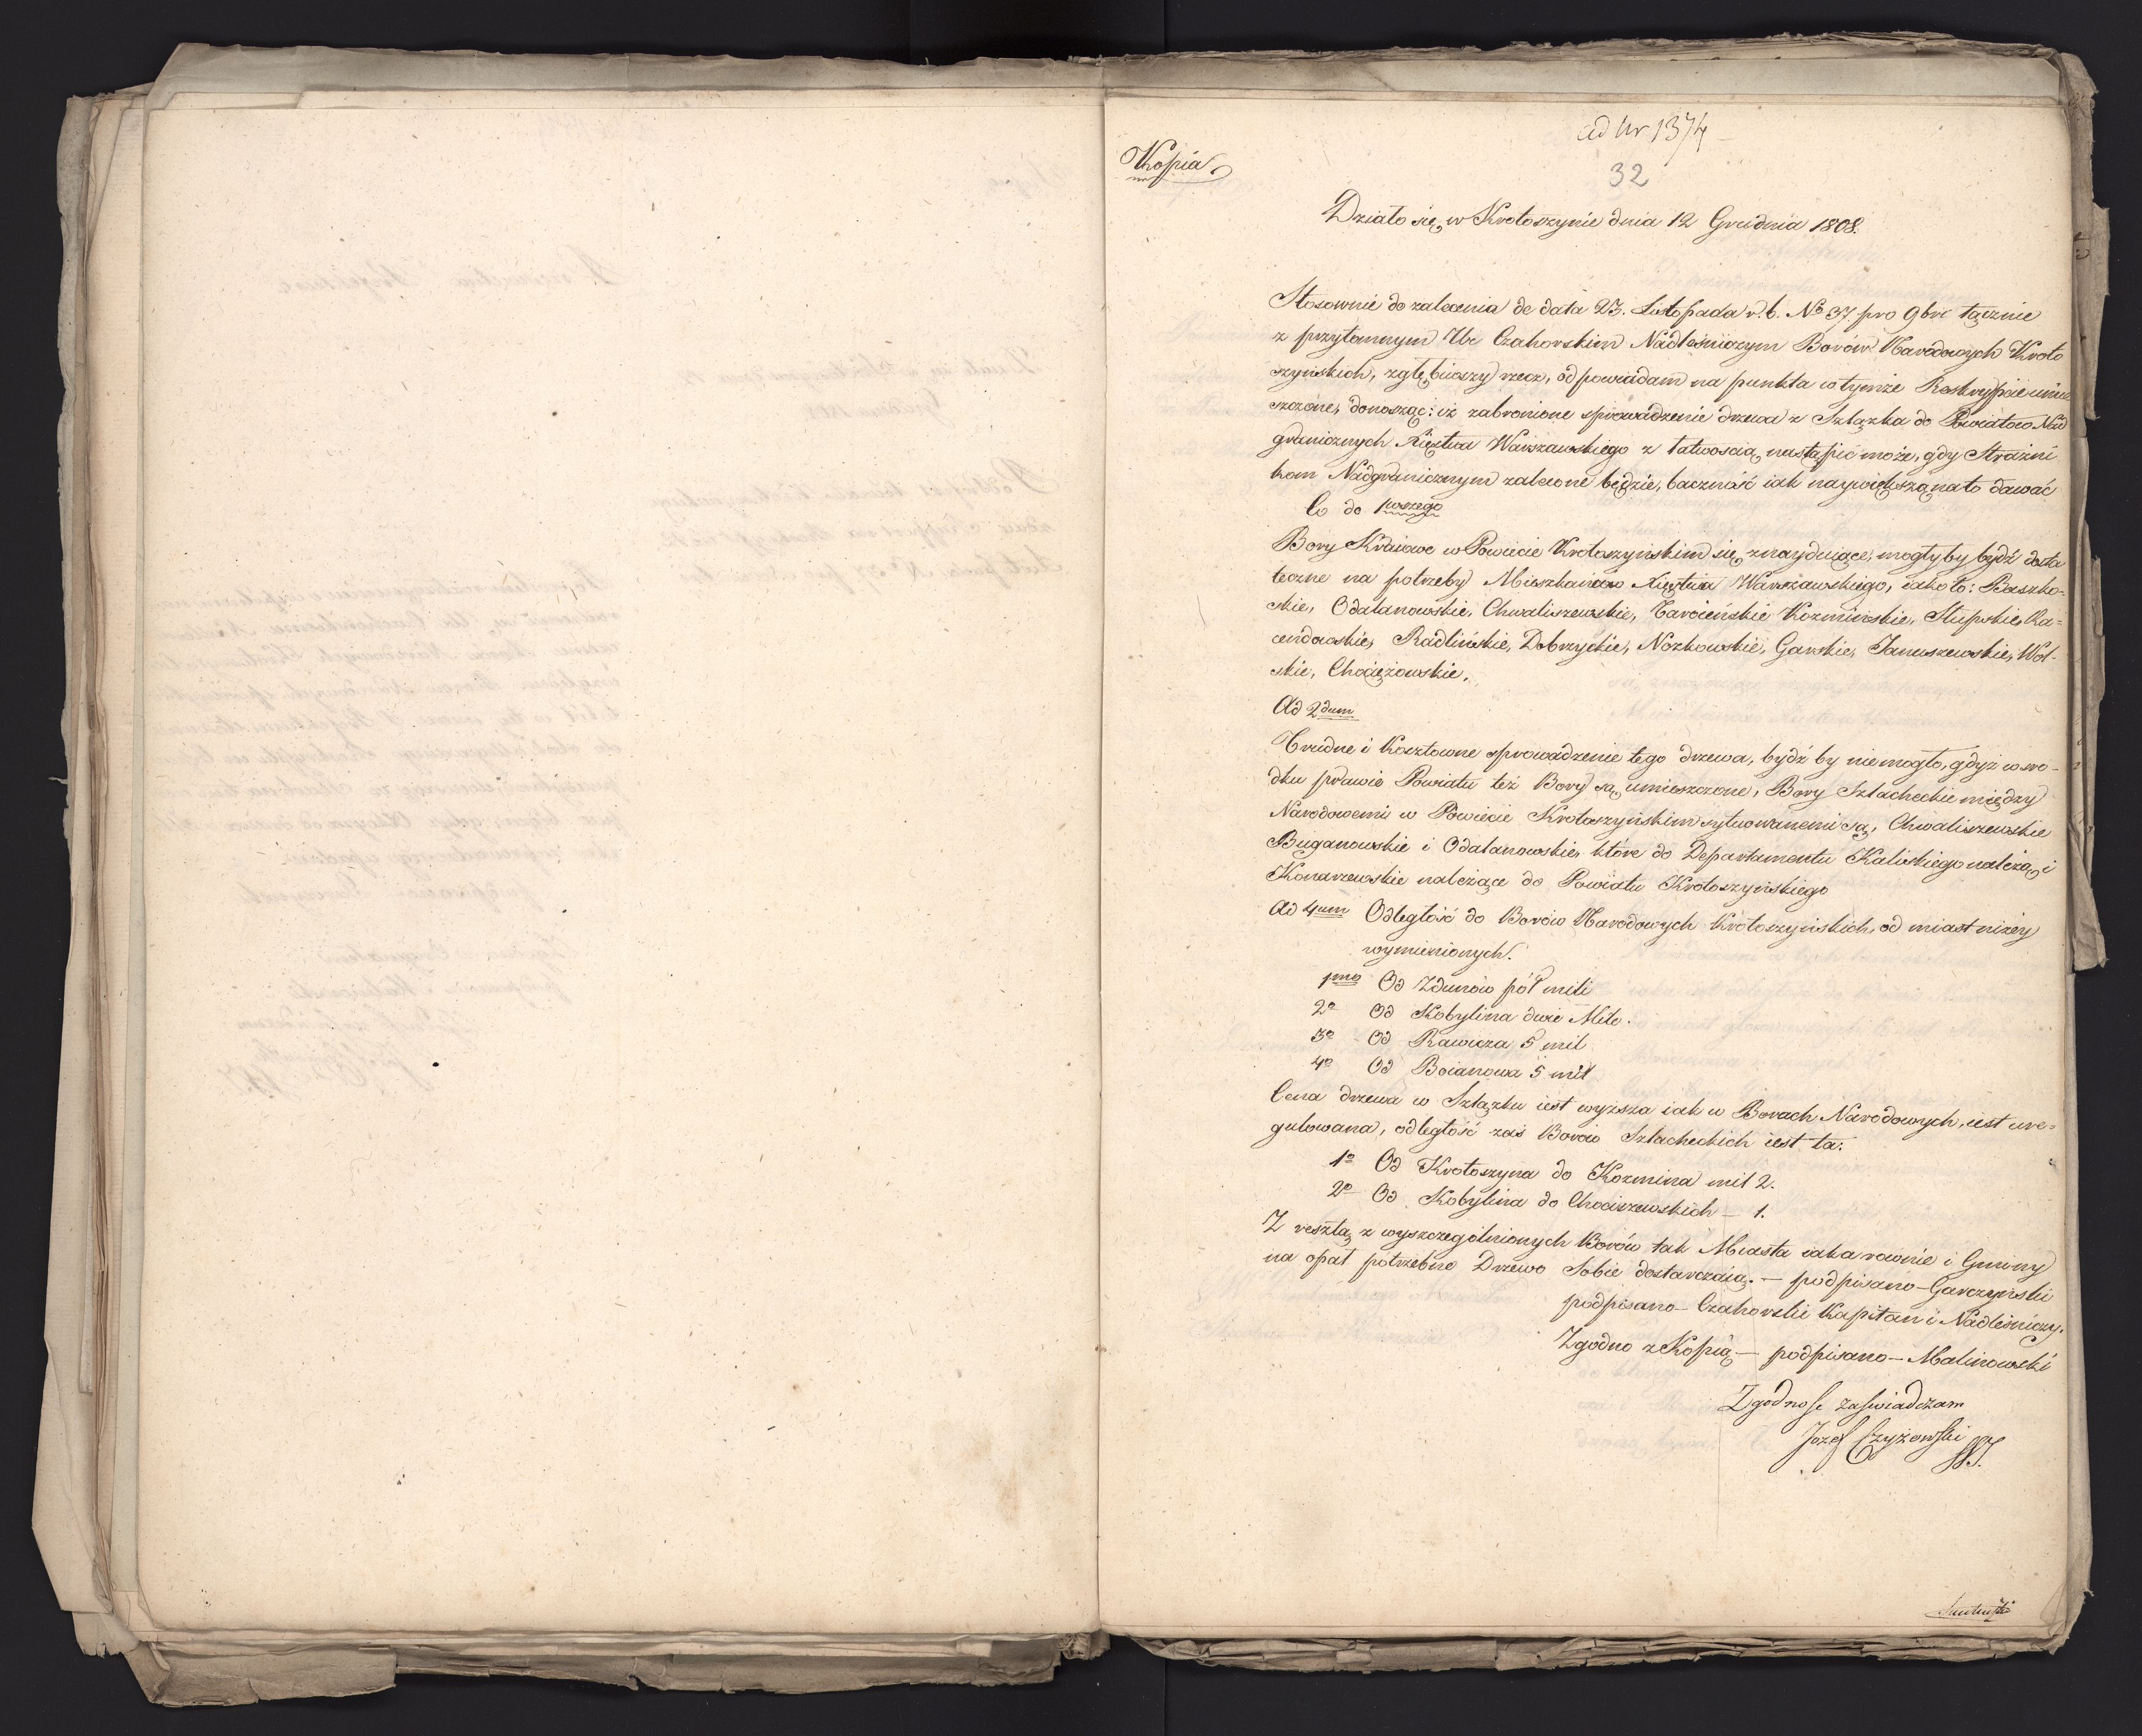 ad Nr 1374
Kopia
32
Działo się w Krotoszynie dnia 12 Grudnia 1808.
Stosownie do zalecenia de dato 23. Listopada r. b. No 37 pro 9bre łącznie
z przytomnym Ur. Czahorskim Nadleśniczym Borów Narodowych Kroto
szyńskich, zgłębiwszy rzecz, odpowiadam na punkta w tymże Reskrypcie umie
szczone, donosząc: iż zabronione sprowadzenie drzewa z Szlązka do Powiatów Nad
granicznych Xięztwa Warszawskiego z łatwością nastąpić może, gdy Strażni
kom Nadgranicznym zalecone będzie, baczność iak naywiększą na to dawać
Co do 1wszego
Bory Kraiowe w Powiecie Krotoszyńskim się znayduiące, mogłyby bydź dosta
teczne na potrzeby Mieszkańców Xięztwa Warszawskiego, iako to: Baszko-
skie, Odalanowskie, Chwaliszewskie, Karcińskie Kozminskie, Słupskie, Ka=
cendowskie, Radlińskie, Dobrzyckie, Nozkowskie, Garskie, Januszewskie, Wol-
skie, Chociżowskie.
Ad 2dum
Trudne i Kosztowne sprowadzenie tego drzewa, bydź by niemogło, gdyż w sro-
dku prawie Powiatu też Bory są umieszczone, Bory Szlacheckie między
Narodowemi w Powiecie Krotoszyńskim sytuowanemi są, Chwaliszewskie
Buganowskie i Odalanowskie, które do Departamentu Kaliskiego należą i
Konarzewskie należące do Powiatu Krotoszyńskiego
Ad 4um Odległość do Borów Narodowych Krotoszyńskich, od miast niżey
wymienionych.
1mo Od Zdunów pół mili
2o Od Kobylina dwie Mile.
3o Od Rawicza 5 mil
4o Od Boianowa 5 mil
Cena drzewa w Szlązku iest wyższa iak w Borach Narodowych, iest ure=
gulowana, odległość zaś Borów Szlacheckich iest ta:
1o Od Krotoszyna do Kozmina mil 2.
2o Od Kobylina do Chociszewskich — 1.
Z resztą z wyszczególnionych Borów tak Miasta iako rownie i Gminy
na opał potrzebne Drzewo Sobie dostarczaią. — podpisano — Garczyński
podpisano — Czahorski Kapitan i Nadleśniczy.
Zgodno z Kopią — podpisano — Malinowski
Zgodnosc zaswiadczam
Jozef Czyżowski